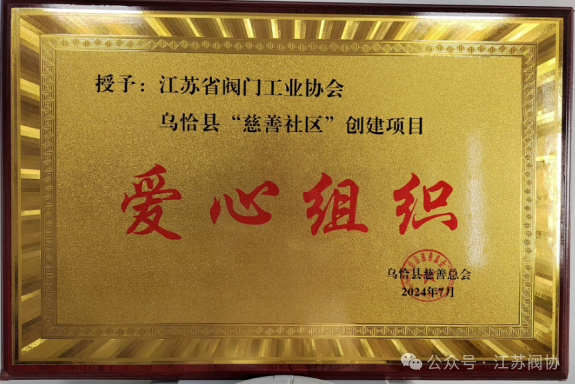 授予：江苏省阀门工业协会
乌恰县“慈善社区”创建项目
爱心组织
乌恰县慈善总会
2024年7月
公众号·江苏阀协